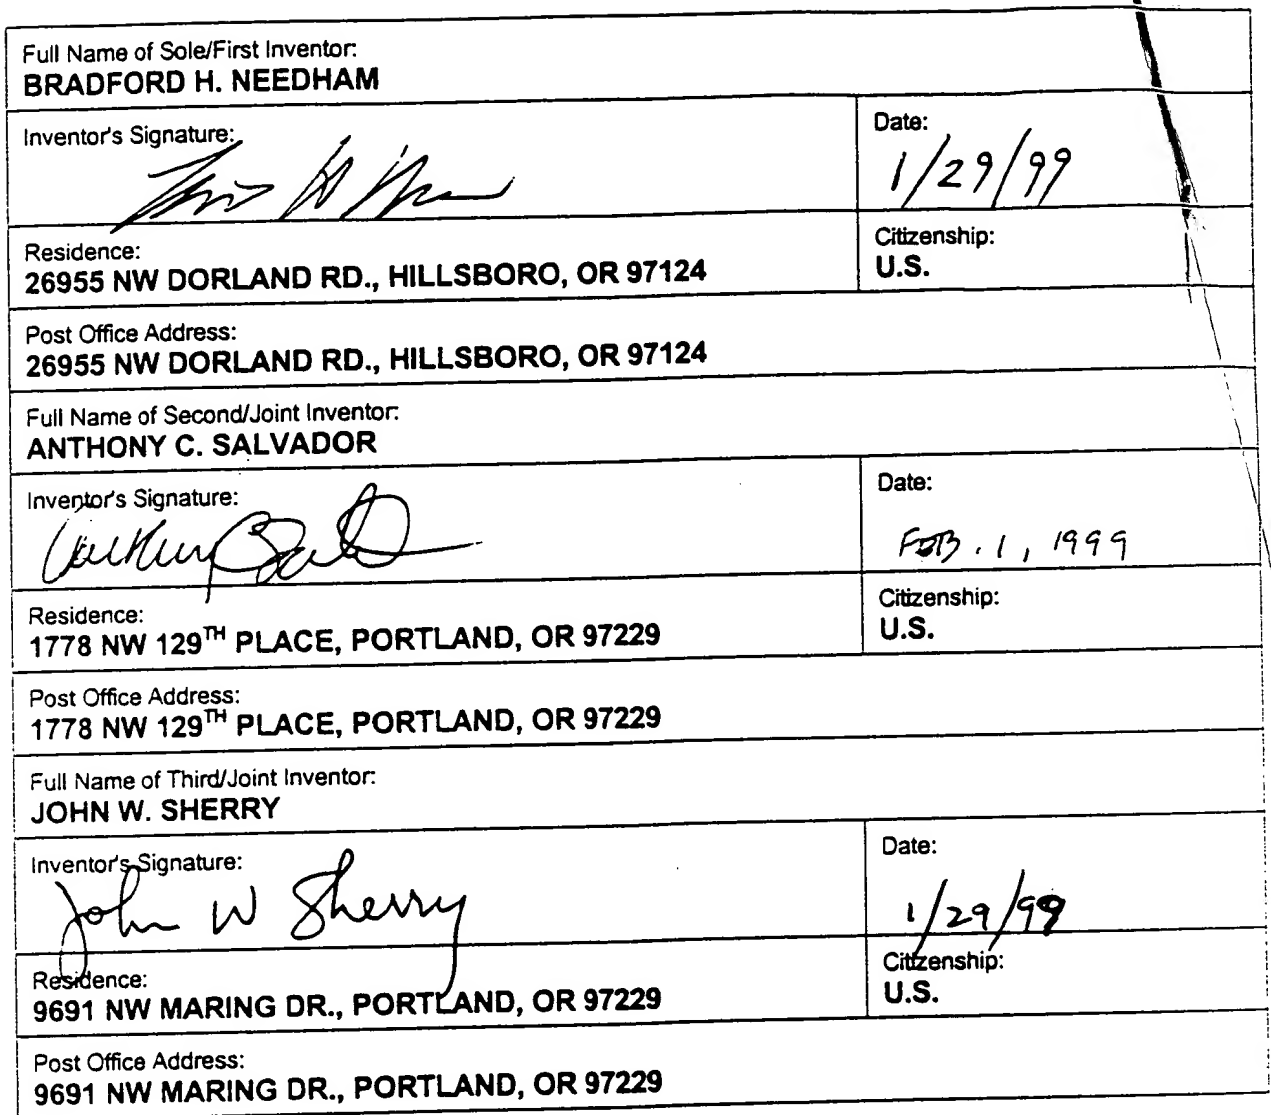 Full Name of Sole/First Inventor:
BRADFORD H. NEEDHAM
Inventor's Signature:
Date:
1/29/99
Residence:
26955 NW DORLAND RD., HILLSBORO, OR 97124
Citizenship:
U.S.
Post Office Address:
26955 NW DORLAND RD., HILLSBORO, OR 97124
Full Name of Second/Joint Inventor:
ANTHONY C. SALVADOR
Inventor's Signature:
Date:
FEB. 1, 1999
Residence:
1778 NW 129TH PLACE, PORTLAND, OR 97229
Citizenship:
U.S.
Post Office Address:
1778 NW 129TH PLACE, PORTLAND, OR 97229
Full Name of Third/Joint Inventor:
JOHN W. SHERRY
Inventor's Signature:
John W Sherry
Date:
1/29/99
Residence:
9691 NW MARING DR., PORTLAND, OR 97229
Citizenship:
U.S.
Post Office Address:
9691 NW MARING DR., PORTLAND, OR 97229